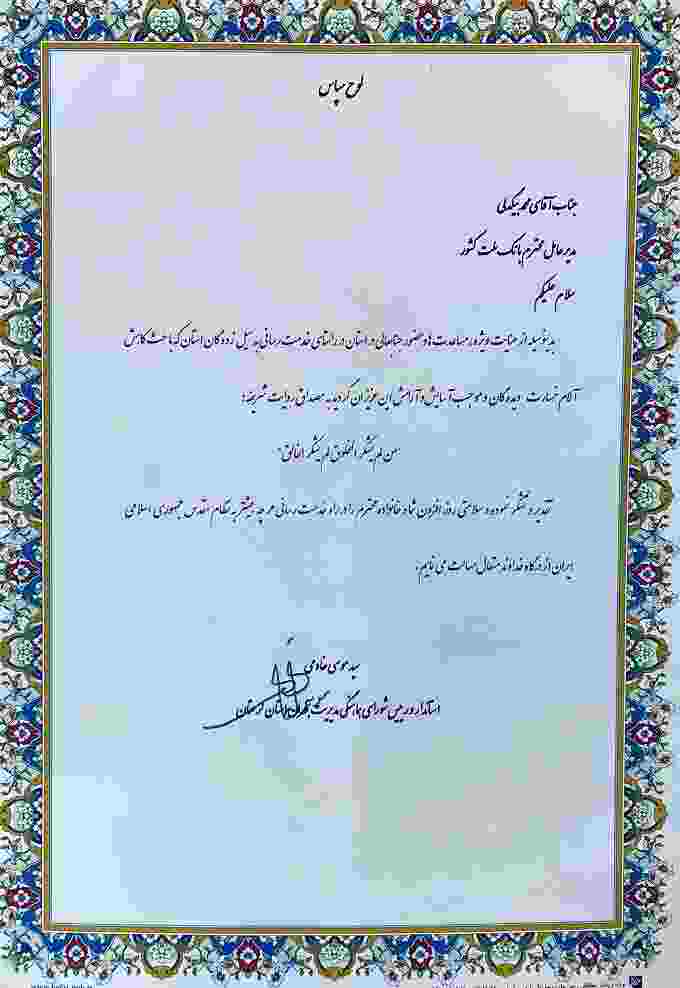 لوح سپاس
جناب آقای محمد بیگدلی
مدیر عامل محترم بانک ملت کشور
سلام علیکم
بدینوسیله از عنایت ویژه و مساعدت ها و حضور جنابعالی در استان در راستای خدمت رسانی به سیل زدگان استان که باعث کاهش
آلام خسارت دیدگان و موجب آسایش و آرامش این عزیزان گردید به مصداق روایت شریفه :
"من لم یشکر المخلوق لم یشکر الخالق"
تقدیر و تشکر نموده و سلامتی روز افزون شما و خانواده محترم را در راه خدمت رسانی هر چه بیشتر به نظام مقدس جمهوری اسلامی
ایران از درگاه خداوند متعال مسالت می نمایم .
سید موسی خادمی
استاندار و رییس شورای هماهنگی مدیریت بحران استان لرستان